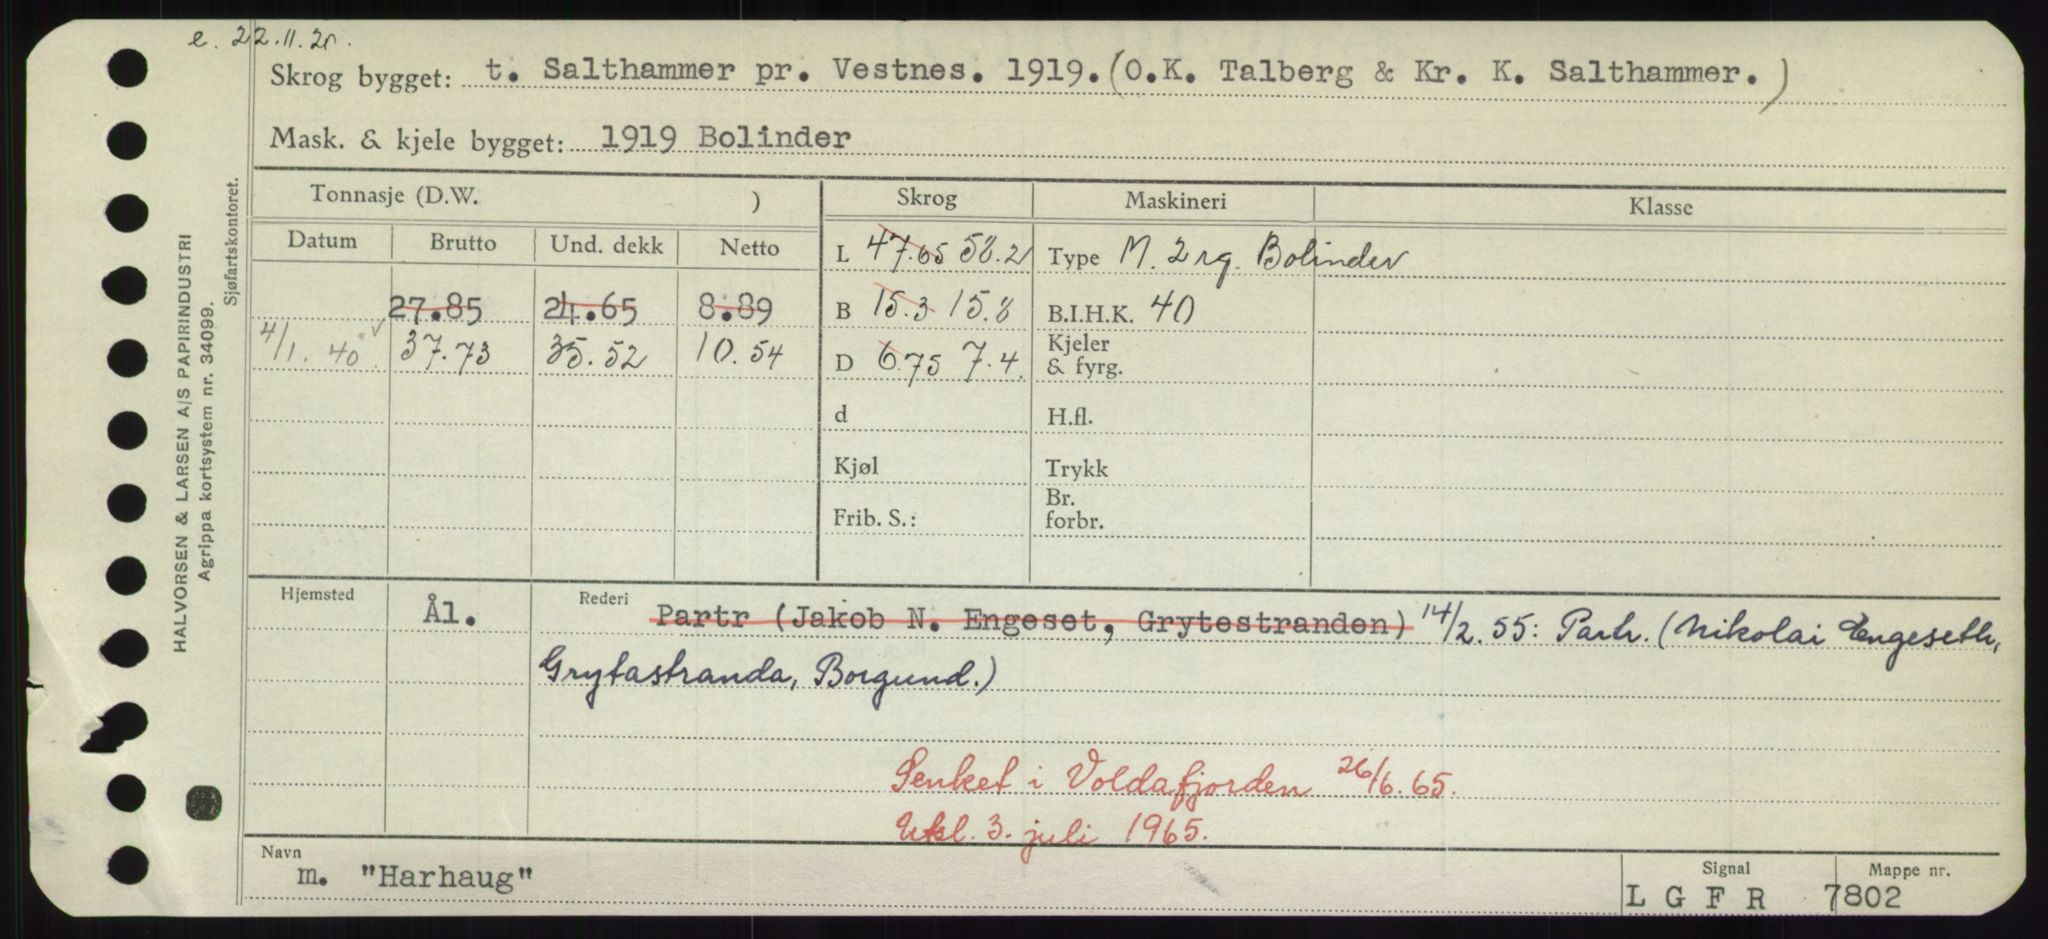 e. 22.11.20.
Skrog bygget: t. Salthammer pr. Vestnes. 1919. (O.K. Talberg & Kr. K. Salthammer.)
Mask. & kjele bygget: 1919 Bolinder
Tonnasje (D.W. ) Skrog Maskineri Klasse
Datum Brutto Und. dekk Netto
L 47.65 58.2 Type M. 2 rg. Bolinder
27.85 24.65 8.89 B 15.3 15.8 B.I.H.K. 40
4/1. 40 ✓ 37.73 35.52 10.54 D 6.75 7.4. Kjeler & fyrg.
d H.fl.
Kjøl Trykk
Frib. S.: Br. forbr.
Hjemsted Ål. Rederi Partr (Jakob N. Engeset, Grytestranden) 14/2.55: Partr. (Nikolai Engeseth,
Grytastranda, Borgund.)
Senket i Voldafjorden 26/6.65.
Utsl. 3. juli 1965.
Navn Signal Mappe nr.
m. "Harhaug" L G F R 7802
HALVORSEN & LARSEN A/S PAPIRINDUSTRI
Agrippa kortsystem nr. 34099.
Sjøfartskontoret.